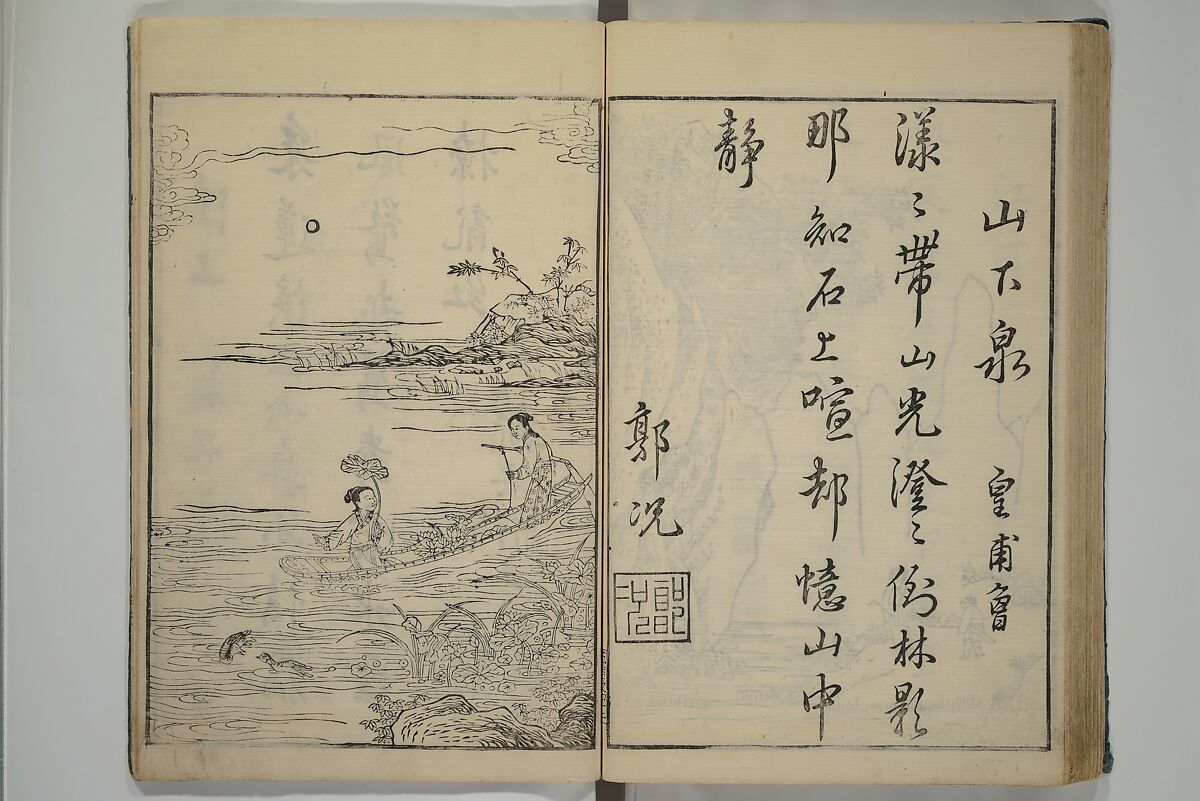 山下泉 皇甫曾
漾〻帶山光澄〻倒林影
那知石上喧却憶山中
靜
郭况